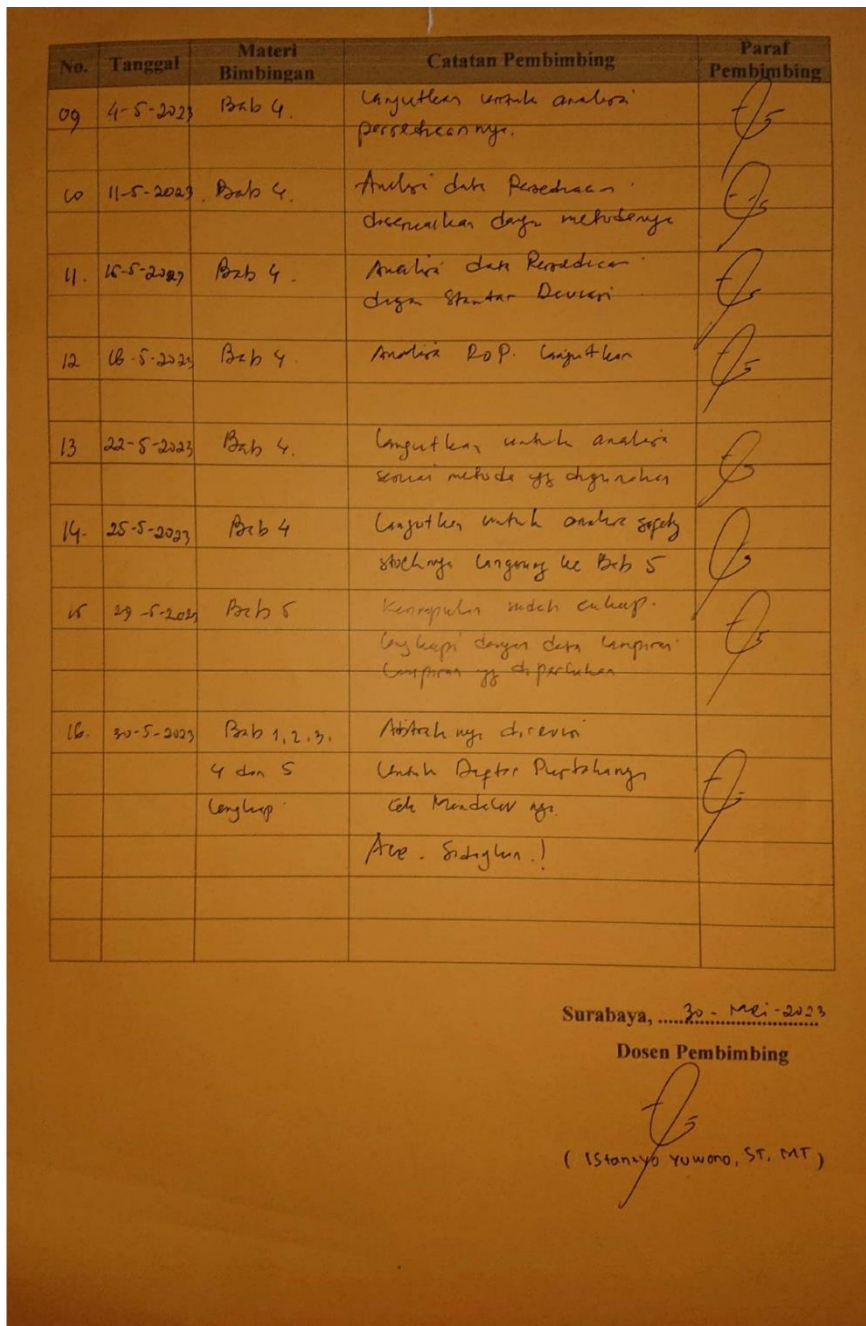 No. Tanggal Materi Bimbingan Catatan Pembimbing Paraf Pembimbing
09 4-5-2023 Bab 4. Lanjutkan untuk analisa
persediaannya.
10 11-5-2023 Bab 4. Analisa data Persediaan
disesuaikan dengan metodenya
11. 15-5-2023 Bab 4. Analisa data Persediaan
dengan Standar Deviasi
12 16-5-2023 Bab 4 Analisa ROP. lanjutkan
13 22-5-2023 Bab 4. Lanjutkan untuk analisa
sesuai metode yg digunakan
14. 25-5-2023 Bab 4 Lanjutkan untuk analisa safety
stocknya langsung ke Bab 5
15 29-5-2023 Bab 5 Kesimpulan sudah cukup.
Lengkapi dengan data lampiran
lampiran yg diperlukan
16. 30-5-2023 Bab 1, 2, 3. Abstraknya direvisi
4 dan 5 Untuk Daftar Pustakanya
lengkap Cek Mendeley nya.
Acc. Sidangkan.!
Surabaya, 30 - Mei - 2023
Dosen Pembimbing
( Yuwono, ST, MT )